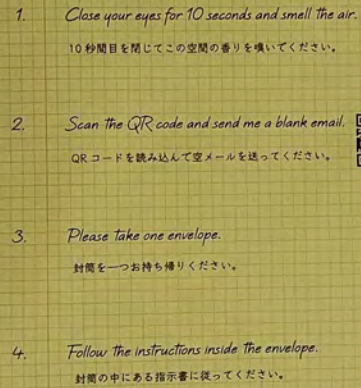 1. Close your eyes for 10 seconds and smell the air.
10秒間目を閉じてこの空間の香りを嗅いでください。
2. Scan the QR code and send me a blank email.
QRコードを読み込んで空メールを送ってください。
3. Please take one envelope.
封筒を一つお持ち帰りください。
4. Follow the instructions inside the envelope.
封筒の中にある指示書に従ってください。